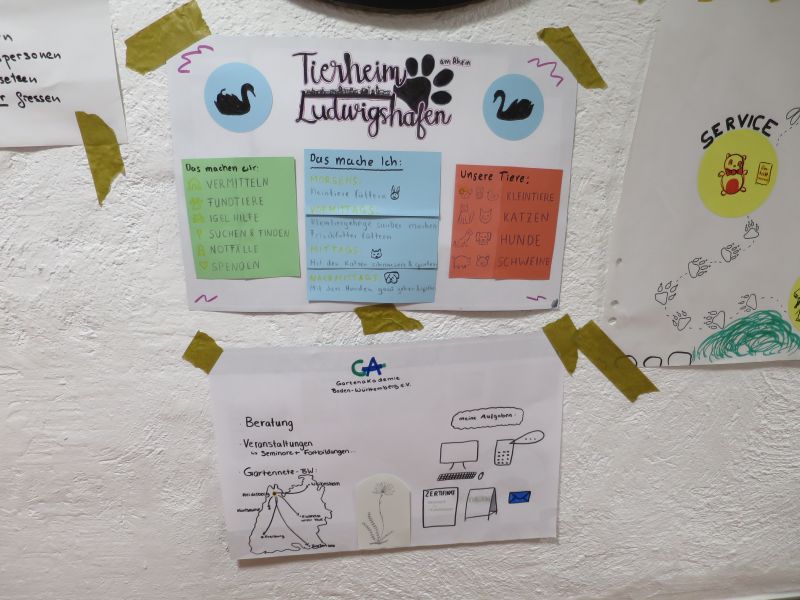 personen
setzen
fressen
Tierheim
am Rhein
Ludwigshafen
Das machen wir:
VERMITTELN
FUNDTIERE
IGEL HILFE
SUCHEN & FINDEN
NOTFÄLLE
SPENDEN
Das mache Ich:
MORGENS:
Kleintiere füttern
VORMITTAGS:
Kleintiergehege sauber machen
Frischfutter füttern
MITTAGS:
Mit den Katzen schmusen & spielen
NACHMITTAGS:
Mit den Hunden gassi gehen
Unsere Tiere:
KLEINTIERE
KATZEN
HUNDE
SCHWEINE
SERVICE
GA
Gartenakademie
Baden-Württemberg e.V.
· Beratung
· Veranstaltungen
↳ Seminare + Fortbildungen...
· Gartennetz-BW:
Heidelberg
Karlsruhe
Freiburg
meine Aufgaben:
ZERTIFIKATE